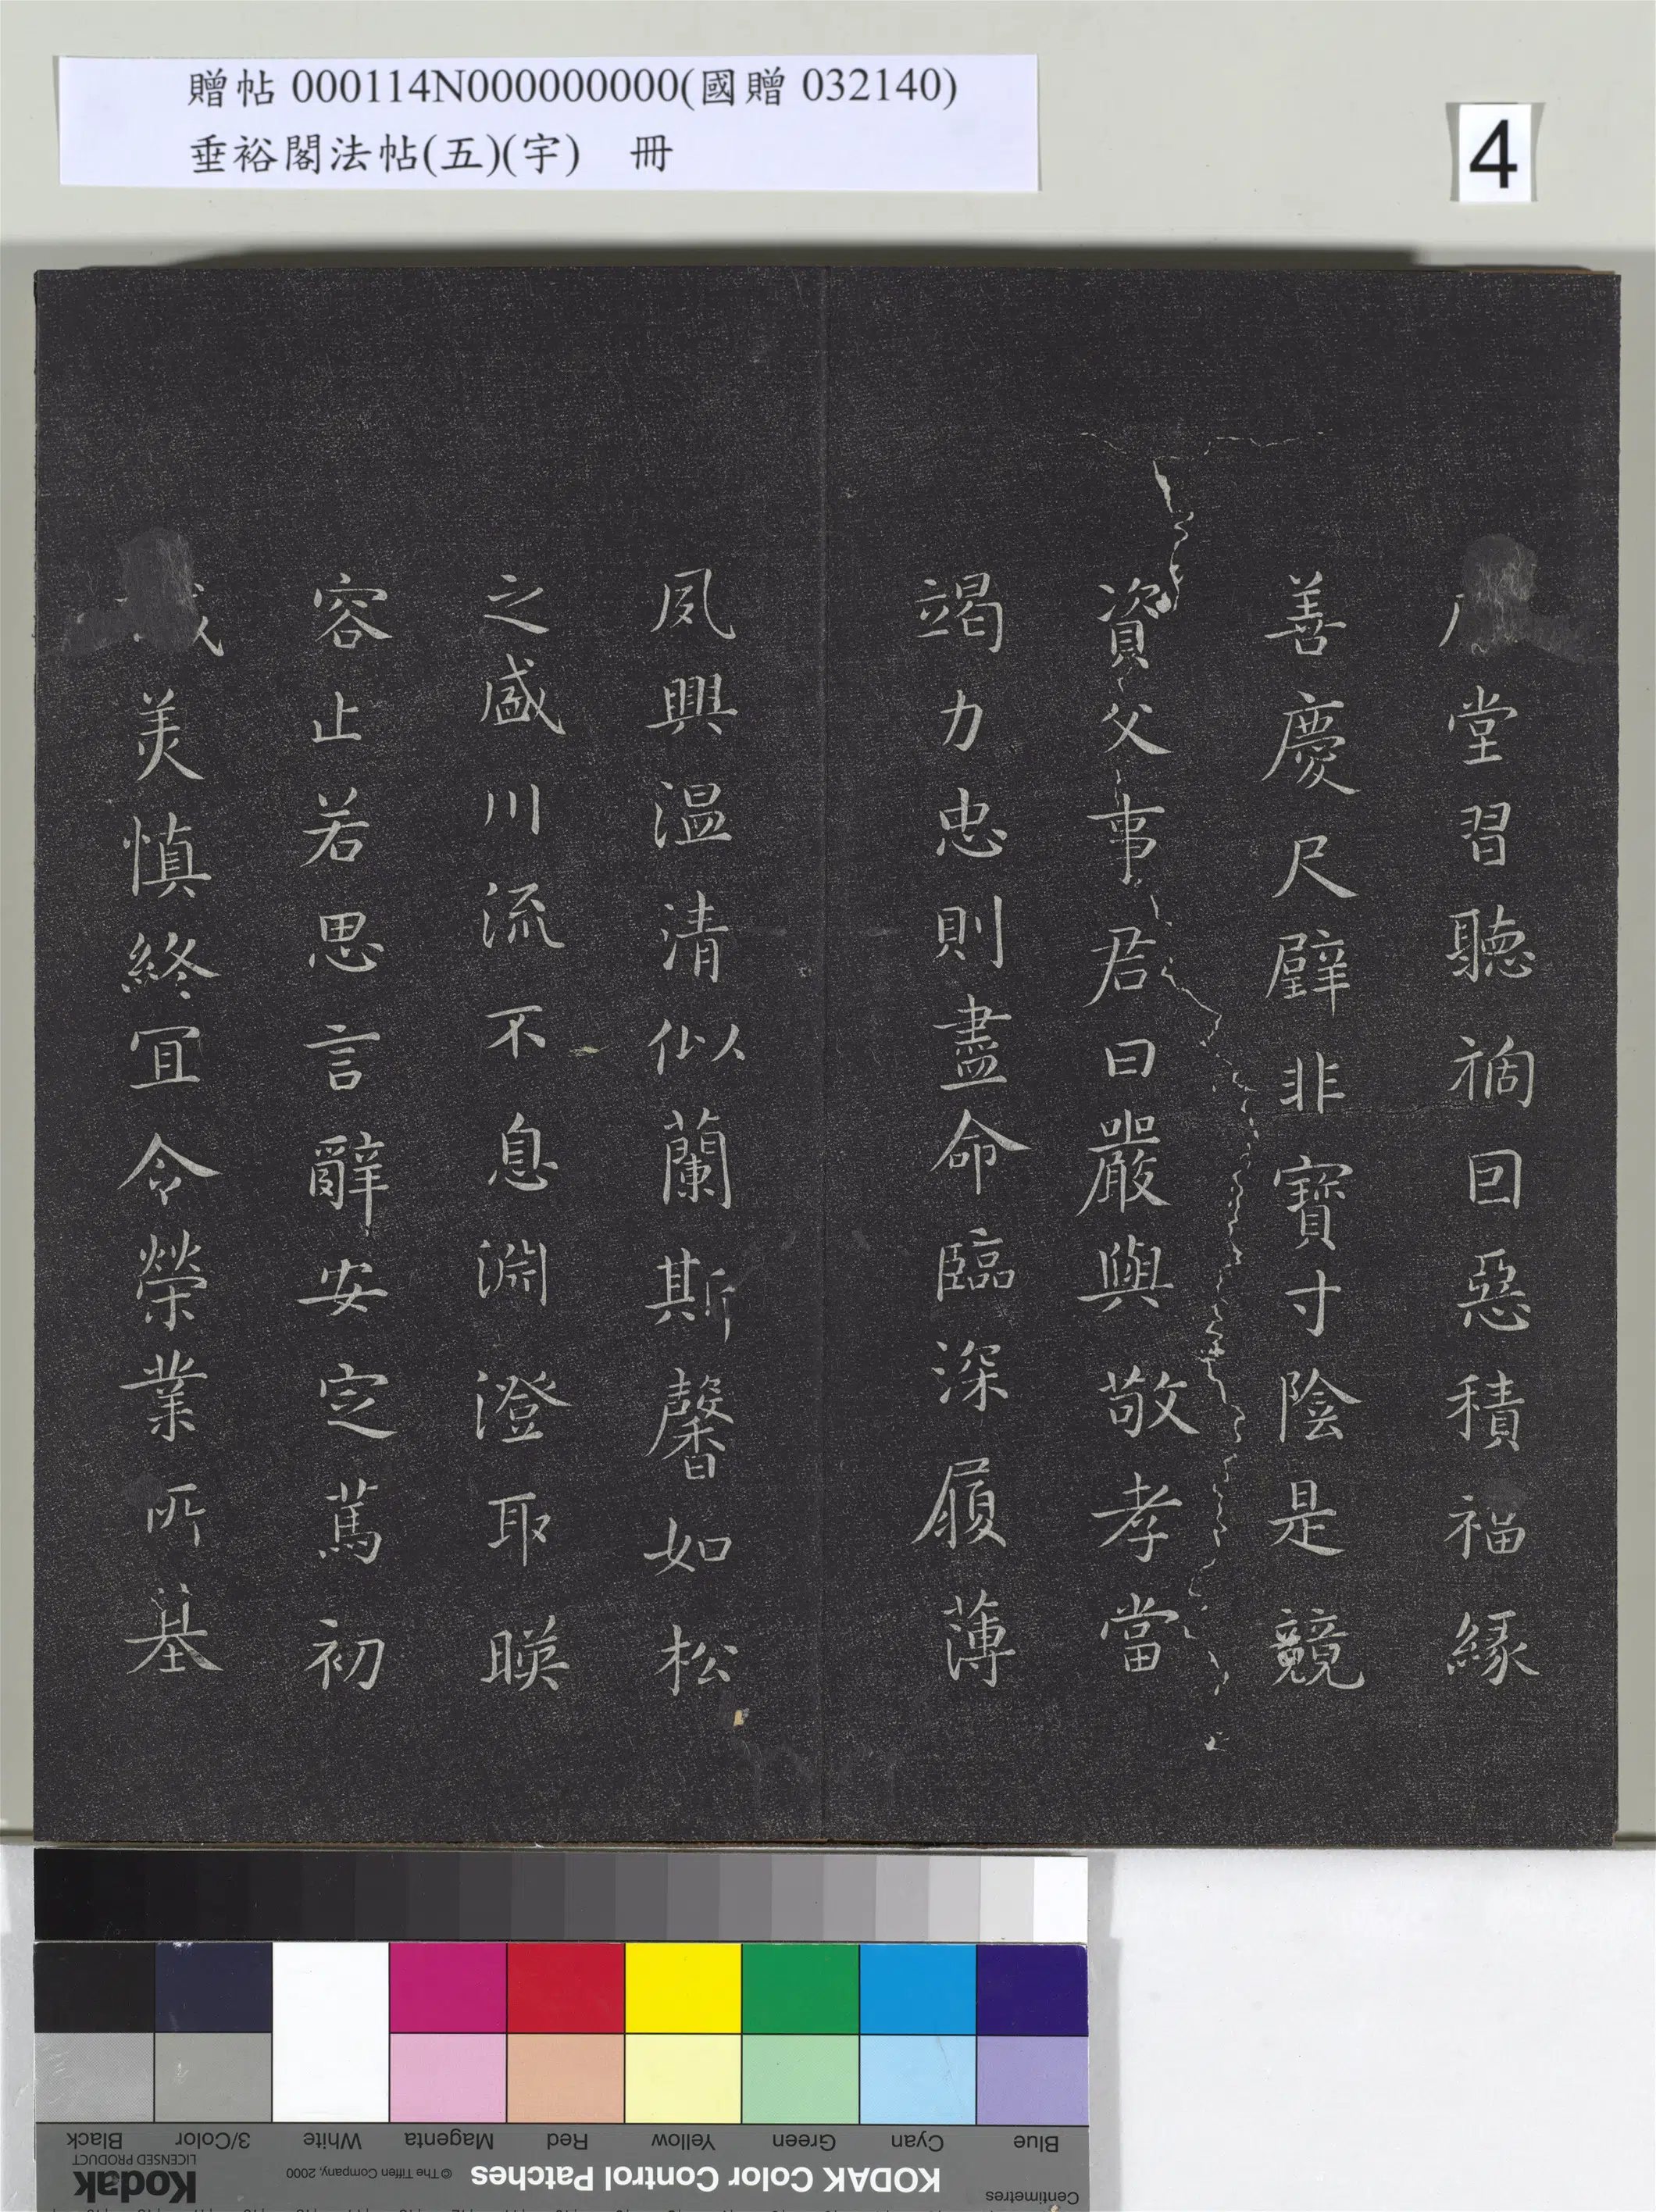 贈帖 000114N000000000(國贈 032140)
垂裕閣法帖(五)(宇) 冊
4
堂習聽禍回惡積福緣
善慶尺璧非寶寸陰是競
資父事君曰嚴與敬孝當
竭力忠則盡命臨深履薄
夙興溫清似蘭斯馨如松
之盛川流不息淵澄取暎
容止若思言辭安定篤初
美慎終宜令榮業所基
Centimetres
KODAK Color Control Patches
© The Tiffen Company, 2000
Kodak
LICENSED PRODUCT
Blue Cyan Green Yellow Red Magenta White 3/Color Black